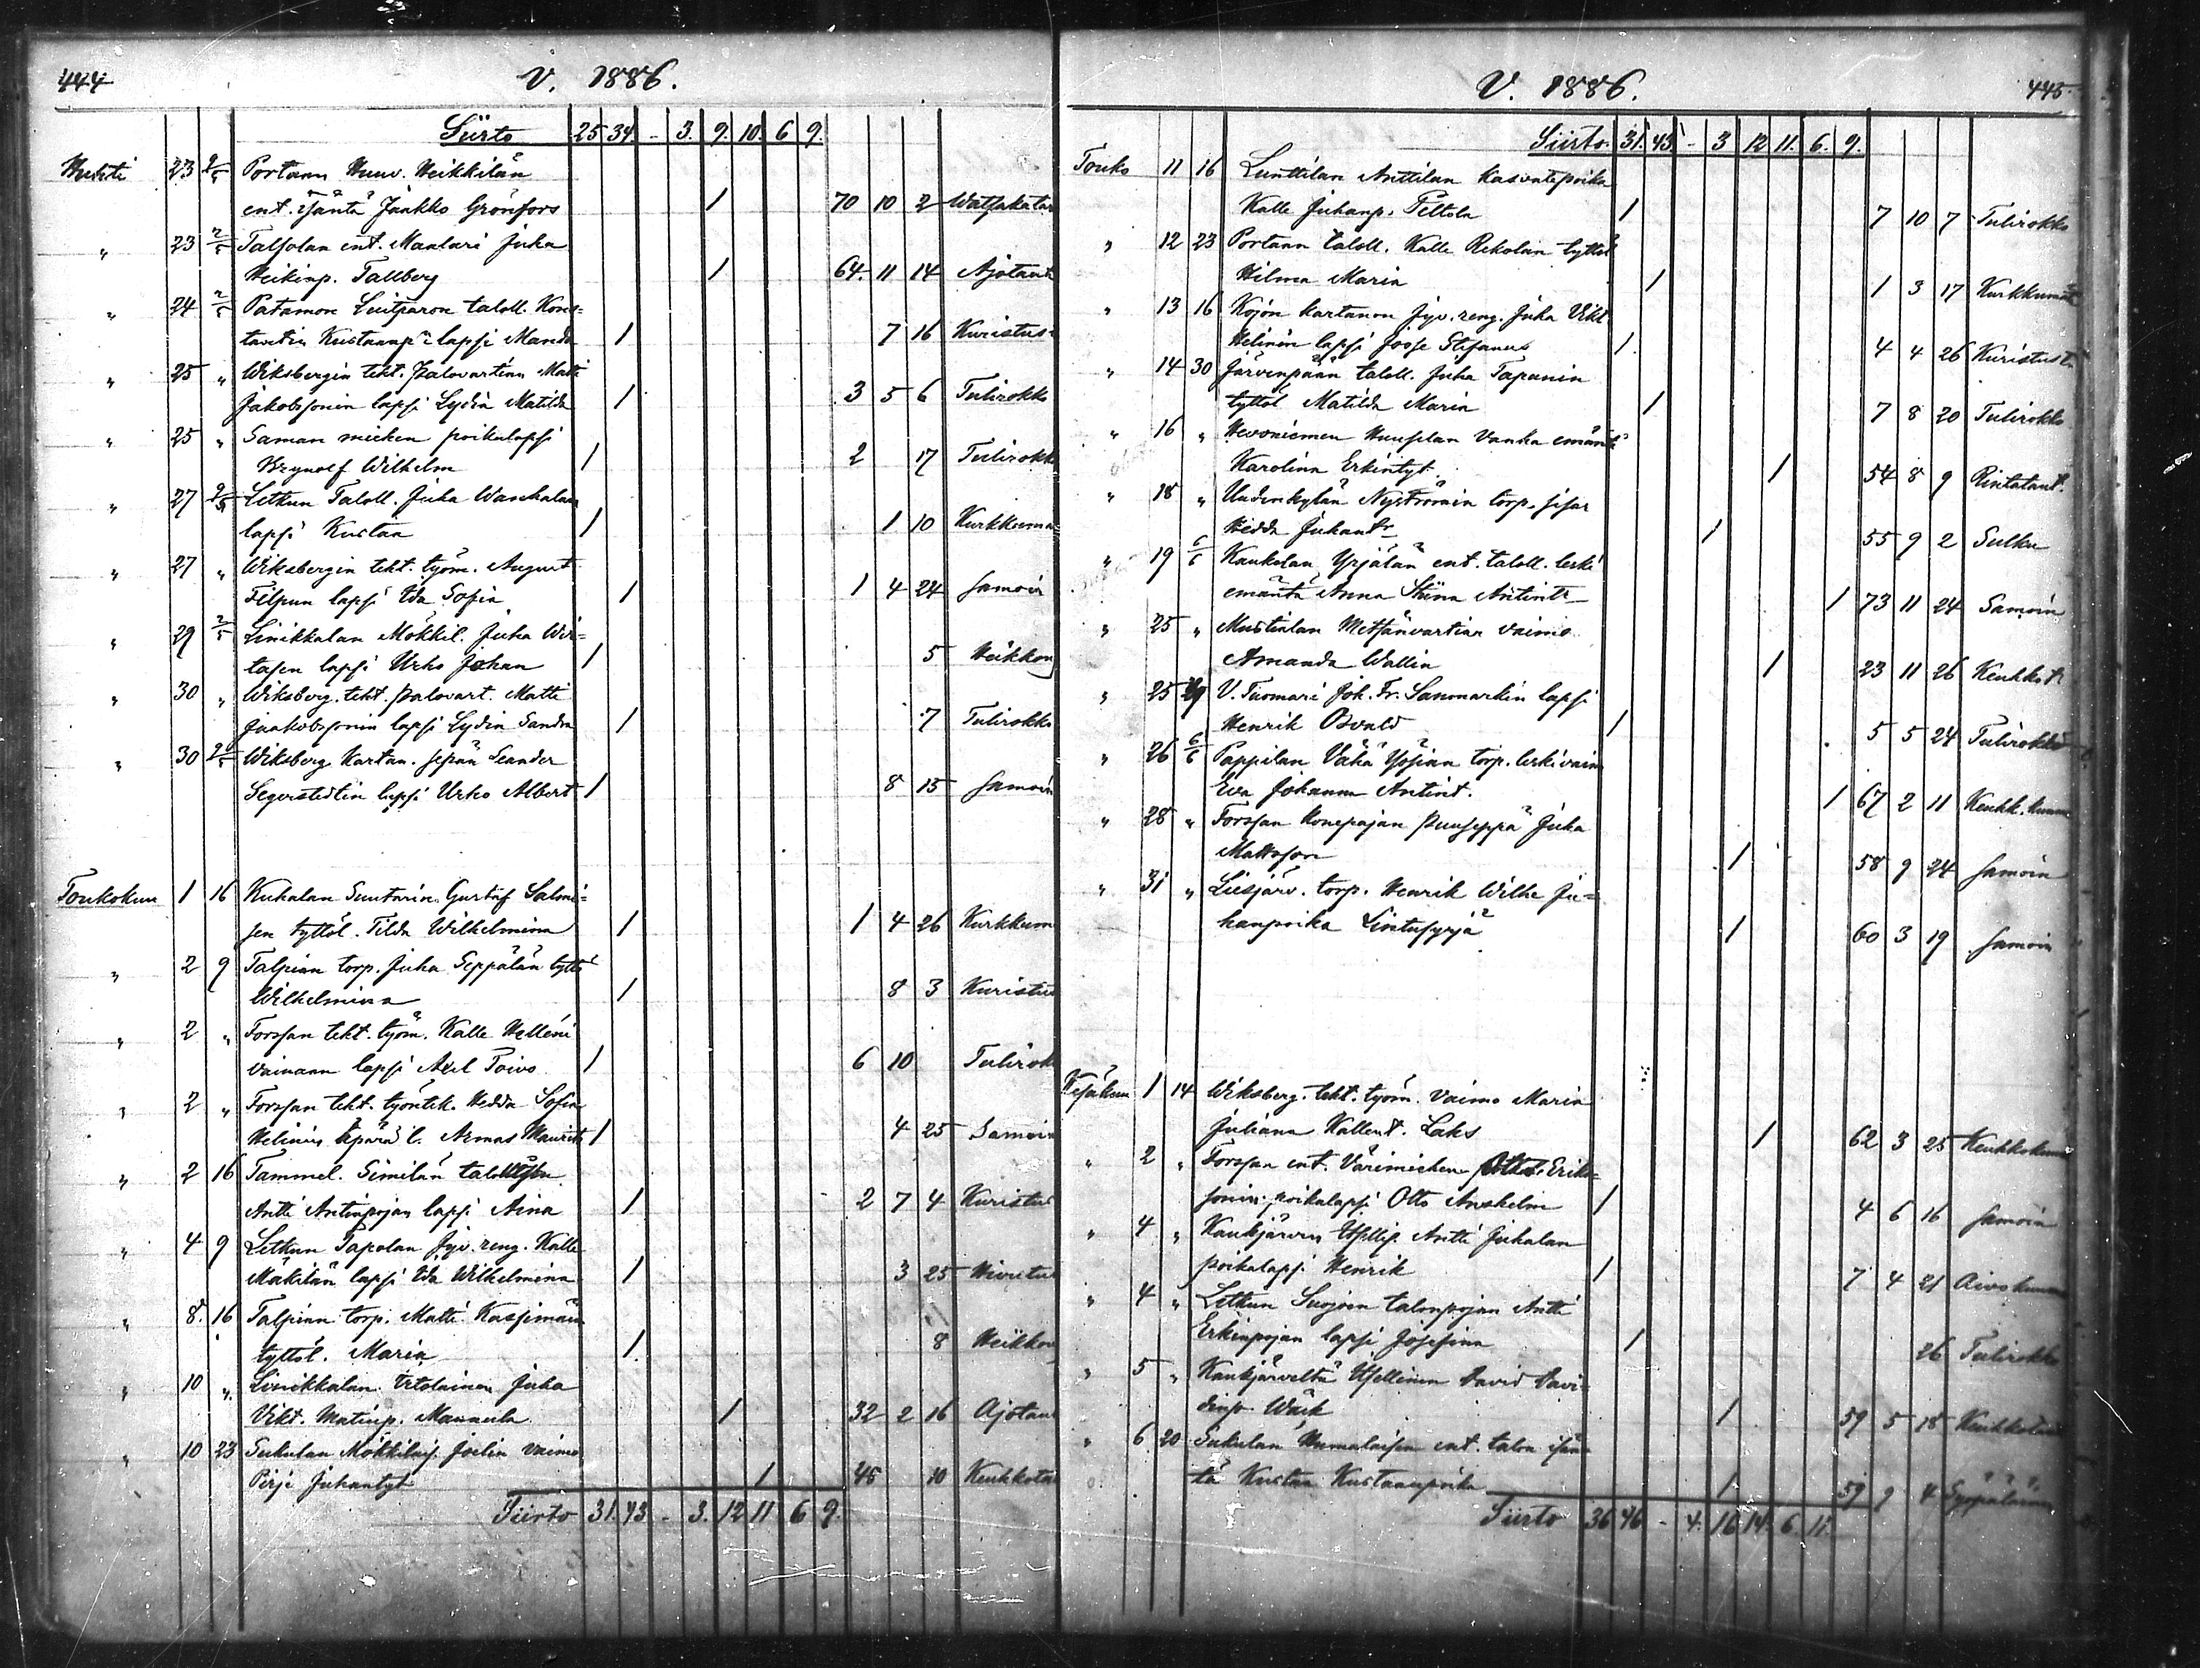 444
V. 1886.
Siirto 25 34. - 3. 9. 10. 6 9.
Huhti 23 2/5 Portaan Heikkilän
ent. isäntä Jaakko Grönfors 1 70 10 2 Watsakatar
" 23 2/5 Talsolan ent. Maalari Juha
Heikinp. Tallberg 1 64. 11 14 Ajotaut
" 24 2/5 Patamon taloll. Kons-
tantin Kustaanp. lapsi Manda 1 7 16 Kuristus
" 25 " Wiksbergin teht. Palovartian Matti
Jakobssonin lapsi Lydia Matilda 1 3 5 6 Tulirokko
" 25 " Saman miehen poikalapsi
Brynolf Wilhelm 1 2 17 Tulirokk
" 27 2/5 Letkun Taloll. Juha
lapsi Kustaa 1 1 10 Kurkkuma
" 27 " Wiksbergin teht. työm. August
Filpun lapsi Ida Sofia 1 1 4 24 Samoin
" 29 2/5 Linikkalan Mökkil. Juha Wir-
tasen lapsi Urho Johan 1 5 Heikkou
" 30 " Wiksberg. teht. palovart. Matti
Jaakobssonin lapsi Lydia Sandra 1 7 Tulirokko
" 30 2/5 Wiksberg Kartan. sepän Leander
Segerstedtin lapsi Urho Albert 1 8 15 Samoin
Toukokuu 1 16 Kuhalan Suutarin Gustaf Salmi-
sen tyttöl. Tilda Wilhelmina 1 1 4 26 Kurkkum
" 2 9 Talpian torp. Juha Seppälän tyttö
Wilhelmina 1 8 3 Kuristus
" 2 " Forssan teht. työm. Kalle Helleni
vainaan lapsi Axel Toivo 1 6 10 Tulirok
" 2 " Forssan teht. työntek. Hedda Sofia
Helinin äpärä l. Armas Maurits 1 4 25 Samoin
" 2 16 Tammel. Similän
Antti Antinpojan lapsi Aina 1 2 7 4 Kuristus
" 4 9 Letkun Tapolan jyv. reng. Kalle
Mäkilän lapsi Ida Wilhelmina 1 3 25
" 8. 16 Talpian torp. Matti
tyttöl. Maria 1 8 Heikkou
" 10 " Linikkalan Itsolainen Juha
Vikt. Matinp. Mannela 1 32 2 16 Ajotau
" 10 23 Sukulan Mökkiläis. Joelin vaimo
Pirjo Juhantyt 1 46 10 Keuhkota
Siirto 31. 43 - 3. 12 11 6 9.
V. 1886. 445
Siirto. 31. 43. - 3 12 11. 6. 9.
Touko 11 16 Lunttilan Anttilan kasvatepoika
Kalle Juhanp. Peltola 1 7 10 7 Tulirokko
" 12 23 Portaan taloll. Kalle Rekolan tyttöl
Hilma Maria 1 1 3 17 Kurkkumät
" 13 16 Kojon kartanon jyv. reng. Juha Vikt
Helinin lapsi Joose Stefanus 1 4 4 26 Kuristust
" 14 30 Järvenpään taloll. Juha Tapanin
tyttöl Matilda Maria 1 7 8 20 Tulirokko
" 16 " Hevoniemen vanha emäntä
Karolina Erkintyt. 1 54 8 9 Rintataut.
" 18 " Uudenkylän Nyströmin torp. sisar
Hedda Juhantr 1 55 9 2 Sulku
" 19 6/6 Kaukolan Yrjälän ent. taloll. leski
emäntä Anna Stiina Antintr 1 73 11 24 Samoin
" 25 " Mustialan Metsänvartian vaimo
Amanda Wallin 1 23 11 26 Keuhkot
" 25 29 V. Tuomari Joh. Fr. Sanmarkin lapsi
Henrik Osvald 1 5 5 24 Tulirokko
" 26 6/6 Pappilan Vähä torp. leskivaim
Eva Johanna Antint. 1 67 2 11 Keuhk. kuum
" 28 " Forssan konepajan puuseppä Juha
Mattsson 1 58 9 24 Samoin
" 31 " Liesjärv. torp. Henrik Wilhe Ju-
hanpoika Lintusyrjä 1 60 3 19 Samoin
Kesäkuu 1 14 Wiksberg. teht. työm. vaimo Maria
Juliana Kallent. Laks 1 62 3 25 Keuhkokuu
" 2 " Forssan ent. Värimiehen Erik-
sonin poikalapsi Otto Anshelm 1 4 6 16 Samoin
" 4 " Kaukjärven Antti Juhalan
poikalapsi Henrik 1 7 4 21 Aivokuum
" 4 " Letkun Suojoen talonpojan Antti
Erkinpojan lapsi Josefina 1 26 Tulirokko
" 5 " Kaukjärveltä Itsellinen David Davi-
dinp. 1 59 5 18
" 6 20 Sukulan ent. talon isän-
tä Kustaa Kustaanpoika 1 59 9 4
Siirto 36 46 - 4. 16 14. 6 11.